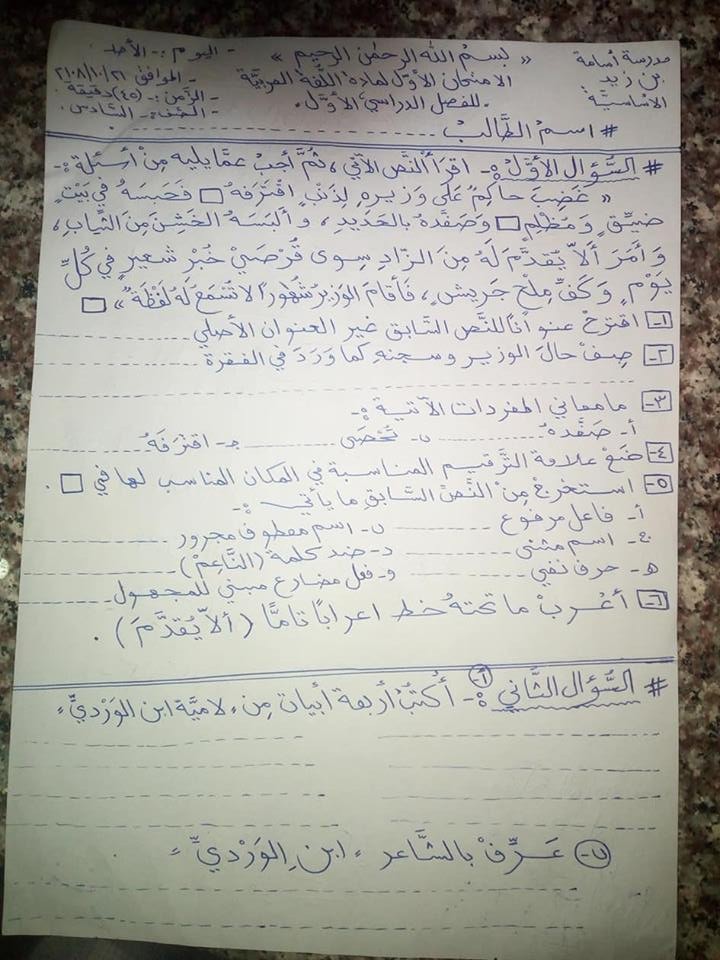 مدرسة أسامة « بسم الله الرحمن الرحيم » - اليوم :- الأحد
بن زيد الامتحان الأوّل لمادة اللغة العربيّة - الموافق ٢١/١٠/٢٠١٨
الأساسيّة للفصل الدراسي الأوّل. - الزّمن :- (٤٥) دقيقة
- الصّف :- السّادس.
# اسم الطّالب
# السّؤال الأوّل :- اقرأ النّص الآتي، ثمَّ أجب عمّا يليه مِنْ أسئلة :-
« غَضِبَ حاكِمٌ عَلى وَزيرهِ لِذَنْبٍ اقْتَرَفهُ □ فَحَبَسَهُ في بَيْتٍ
ضيّقٍ وَمُظْلِمٍ □ وَصَفَّدهُ بالحَديدِ، وألبَسَهُ الخَشِنَ مِنَ الثّيابِ،
وَأمَرَ ألاّ يُقدَّمَ لَهُ مِنَ الزّادِ سِوى قُرْصَيْ خُبْزِ شعيرٍ في كُلِّ
يَوْمٍ وَكَفِّ مِلْحٍ جَريشٍ، فَأقامَ الوَزيرُ شُهُورًا لا تُسْمَعُ لَهُ لَفْظَةٌ » □
١- اقترحْ عنوانًا للنَّص السّابق غير العنوان الأصلي
٢- صِفْ حالَ الوزير وسجنهِ كما وَرَدَ في الفقرة
٣- ما معاني المفردات الآتية :-
أ- صَفَّدهُ ب- تُحْصَى جـ- اقتَرَفَهُ
٤- ضَعْ علامة التّرقيم المناسبة في المكان المناسب لها في □ .
٥- استخرجْ مِنْ النَّصّ السّابق ما يأتي :-
أ- فاعل مرفوع ب- اسم معطوف مجرور
ج- اسم مثنى د- ضد كلمة (النَّاعِمْ)
هـ- حرف نفي و- فعل مضارع مبني للمجهول
٦- أعْربْ ما تحتهُ خط اعرابًا تامًّا (ألاّ يُقدَّمَ).
# السُّؤال الثَّاني :- أ- أكتبْ أربعة أبيات مِن ، لاميَّة ابن الوَرْديّ ،
ب- عَرِّفْ بالشَّاعر ، ابنِ الوَرْديِّ ،